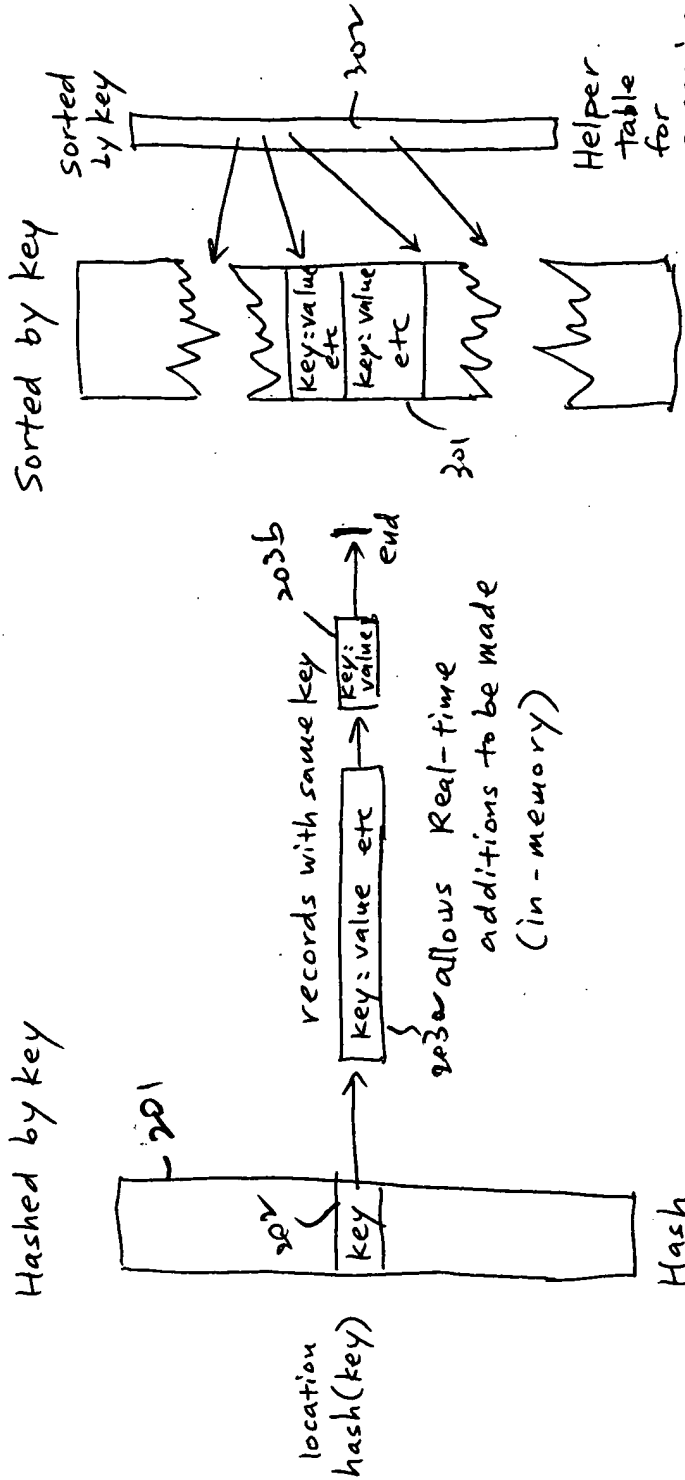 Hashed by key
201
location
hash(key)
202
key
Hash
records with same key
key: value etc
203a
203b
key:
value
end
allows Real-time
additions to be made
(in-memory)
Sorted by key
key: value
etc
key: value
etc
301
sorted
by key
302
Helper
table
for